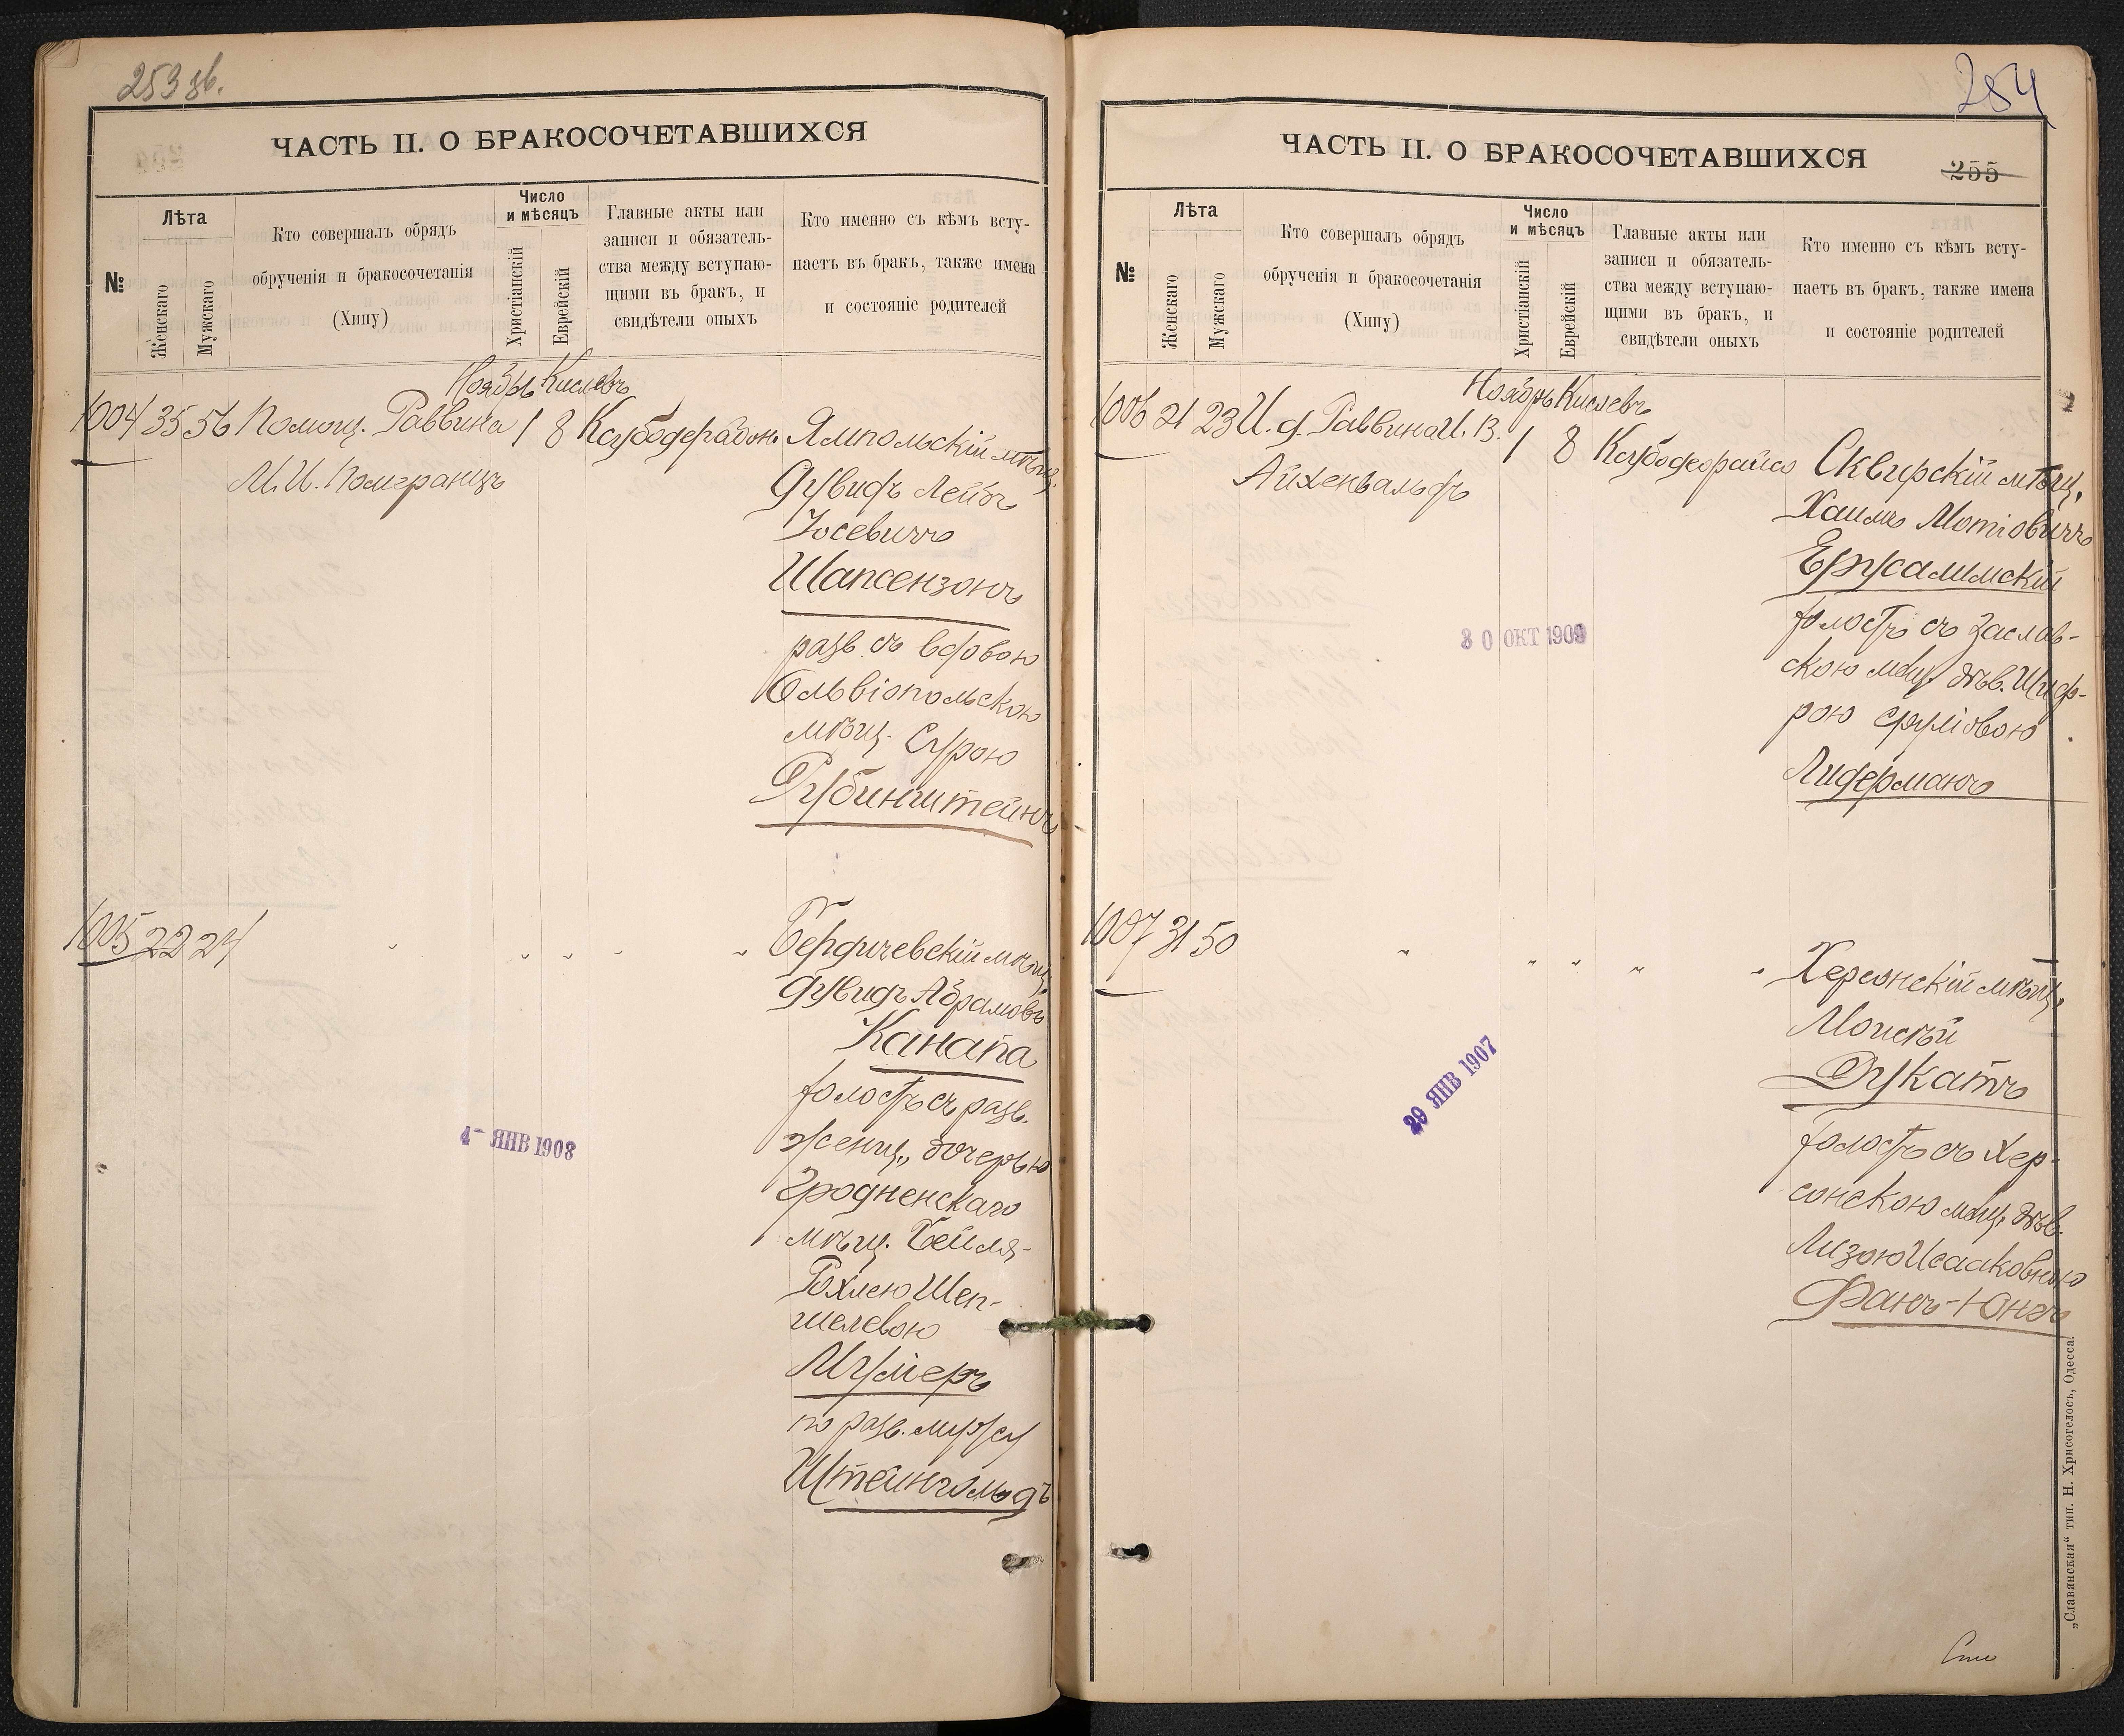 253 зв.
ЧАСТЬ II. О БРАКОСОЧЕТАВШИХСЯ
№
Лѣта
Женскаго
Мужскаго
Кто совершалъ обрядъ
обрученія и бракосочетанія
(Хипу)
Число
и мѣсяцъ
Христіанскій
Еврейскій
Главные акты или
записи и обязатель-
ства между вступаю-
щими въ бракъ, и
свидѣтели оныхъ
Кто именно съ кѣмъ всту-
паетъ въ бракъ, также имена
и состояніе родителей
Ноябрь Кислевъ
1004 35 56 Помощ. Раввина 1 8 Ямпольскій мѣщ.
М. И. Померанцъ
Дувидъ Лейбъ
Іосевичъ
Шапсензонъ
разв. съ вдовою
Ольвіопольскою
мѣщ. Сурою
Рубинштейнъ
1005 22 24 " " " " " Бердичевскій мѣщ.
Дувидъ Абрамовъ
Канапа
холостъ съ разв.
женщ., дочерью
Гродненскаго
мѣщ. Бейля-
Рохлею Шеп-
шелевою
Мулеръ
по разв. мужу
Штейнгольдъ
4- ЯНВ 1908
254
ЧАСТЬ II. О БРАКОСОЧЕТАВШИХСЯ
255
№
Лѣта
Женскаго
Мужскаго
Кто совершалъ обрядъ
обрученія и бракосочетанія
(Хипу)
Число
и мѣсяцъ
Христіанскій
Еврейскій
Главные акты или
записи и обязатель-
ства между вступаю-
щими въ бракъ, и
свидѣтели оныхъ
Кто именно съ кѣмъ всту-
паетъ въ бракъ, также имена
и состояніе родителей
Ноябрь Кислевъ
1006 21 23 И. д. Раввина И. В. 1 8 Сквирскій мѣщ.
Айхенвальдъ
Хаимъ Мотіовичъ
Ерусалимскій
холостъ съ Заслав-
скою мѣщ. дѣв. Шиф-
рою Сруліовою
Лидерманъ
30 ОКТ 1909
1007 31 50 " " " " " Херсонскій мѣщ.
Моисѣй
Дукатъ
холостъ съ Хер-
сонскою мѣщ. дѣв.
Лизою Исааковною
Фанъ-Юнгъ
29 ЯНВ 1907
„Славянская“ тип. Н. Хрисогелосъ, Одесса.